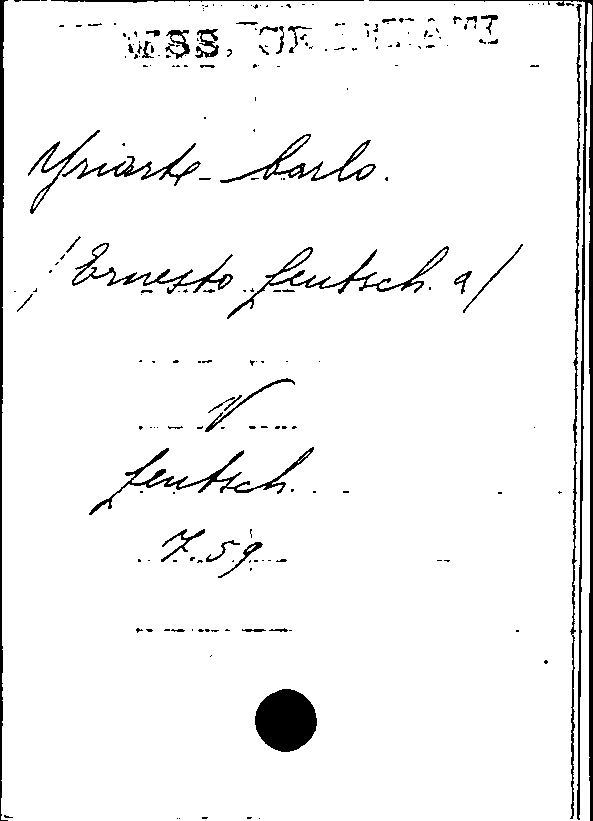 MSS.
Yriarte - Carlo.
/Ernesto Jentsch. a/
V
Jentsch.
7.59